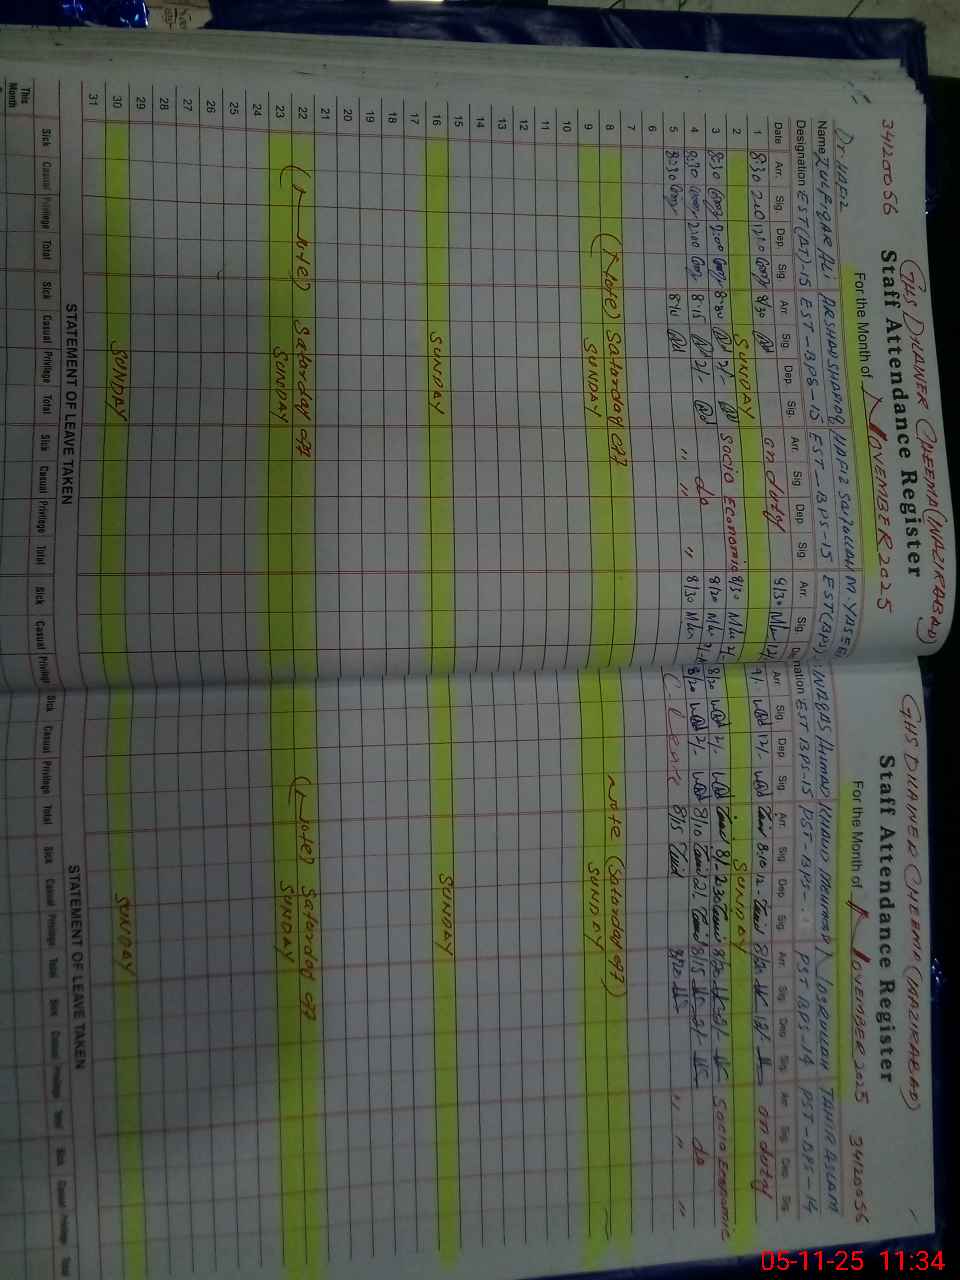 34120056 GHS DILAWER CHEEMA (WAZIRABAD)
Staff Attendance Register
For the Month of NOVEMBER 2025
Dr HAFIZ
Name ZULFIQAR ALI ARSHAD SHAROQ HAFIZ SAIFULLAH M. YASEEN
Designation EST(AT)-15 EST-BPS-15 EST-BPS-15 EST(BPS)
Date Arr. Sig. Dep. Sig. Arr. Sig. Dep. Sig. Arr. Sig. Dep. Sig. Arr. Sig.
1 8:30 12:0 8/30 on duty 8/30 12/
2 SUNDAY
3 8:30 2:00 8:30 2/- Socio Economic 8/30 2/-
4 8:30 2:00 8:15 2/- do 8/20
5 8:30 8:10 " " " 8/30
6
7
8 (Note) Saturday off
9 SUNDAY
10
11
12
13
14
15
16 SUNDAY
17
18
19
20
21
22 (Note) Saturday off
23 SUNDAY
24
25
26
27
28
29
30 SUNDAY
31
STATEMENT OF LEAVE TAKEN
Sick Casual Privilege Total Sick Casual Privilege Total Sick Casual Privilege Total Sick Casual Privilege
This Month
GHS DILAWER CHEEMA (WAZIRABAD)
Staff Attendance Register
For the Month of NOVEMBER 2025 34120056
WAQAS AHMAD KHALID MEHMOOD NASRULLAH TAHIR ASLAM
nation EST BPS-15 PST-BPS- PST BPS-14 PST-BPS-14
Arr. Sig. Dep. Sig. Arr. Sig. Dep. Sig. Arr. Sig. Dep. Sig. Arr. Sig. Dep. Sig.
9/- 12/- 8:10 12- 8/20 12/- on duty
SUNDAY
8/20 2/- 8/- 2:30 8/20 2/- Socio Economic
8/20 2/- 8/10 2/- 8/15 2/- do
C. Leave 8/15 8/20 " " "
Note (Saturday off)
SUNDAY
SUNDAY
(Note) Saturday off
SUNDAY
SUNDAY
STATEMENT OF LEAVE TAKEN
Sick Casual Privilege Total Sick Casual Privilege Total Sick Casual Privilege Total Sick Casual Privilege Total
05-11-25 11:34